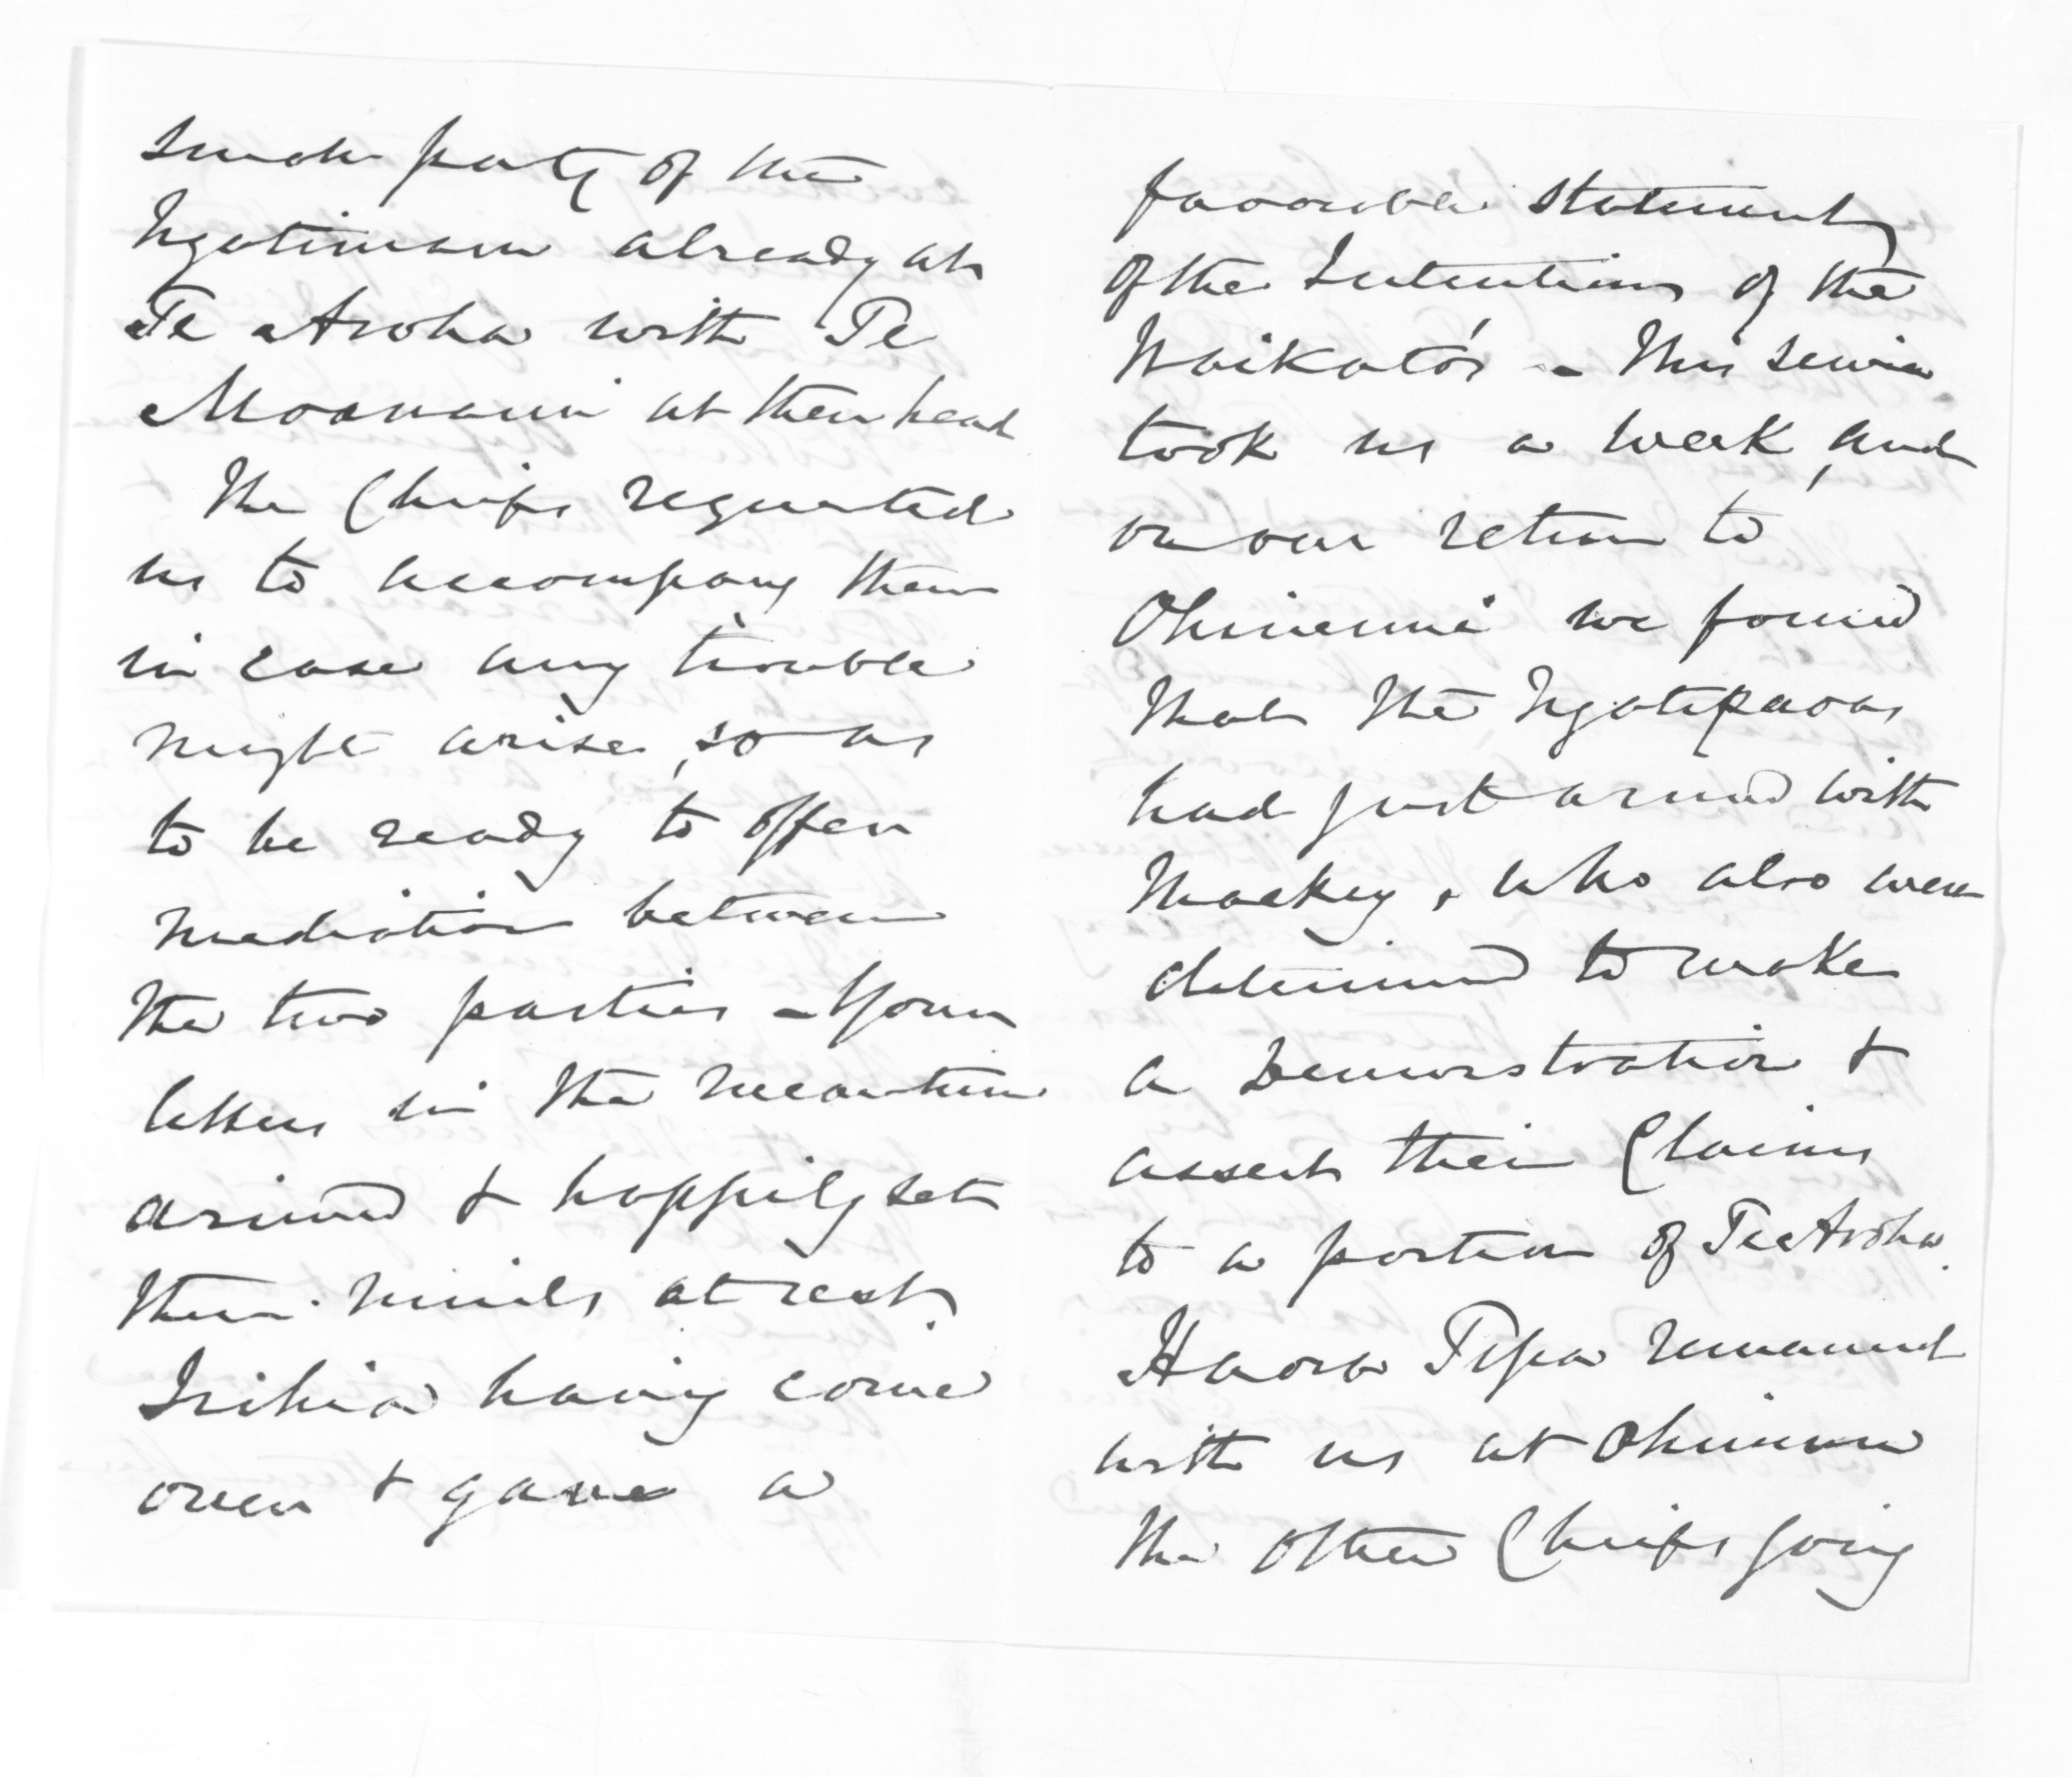 small party of the
Ngatimaru already at
Te Aroha with Te
Moananui at their head
The Chiefs requested
us to accompany them
in case any trouble
might arise, so as
to be ready to offer
mediation between
the two parties - Your
letters in the meantime
arrived & happily set
their minds at rest.
Irihia having come
over & gave a
favorable statement
of the Intentions of the
Waikato's - This service
took us a week, and
on our return to
Ohinemuri we found
that the Ngatipaoas
had just arrived with
Mackay, who also were
determined to make
a Demonstration &
assert their Claims
to a portion of Te Aroha.
Haora Tipa remained
with us at Ohinemuri
the other Chiefs going